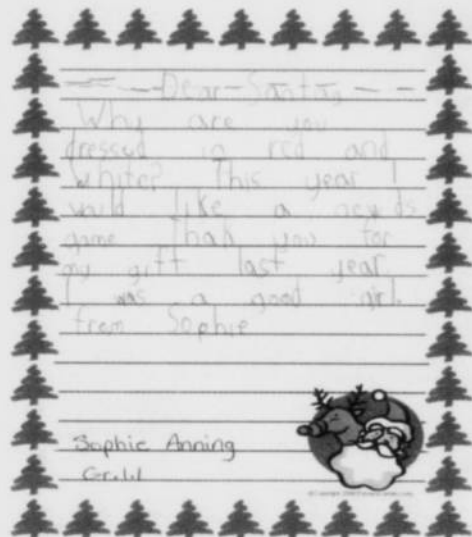 Dear Santa,
Why are you
dressed in red and
white? This year I
would like a new ds
game thah you for
my gift last year.
I was a good girl.
from Sophie
Sophie Anning
Gr.1.1